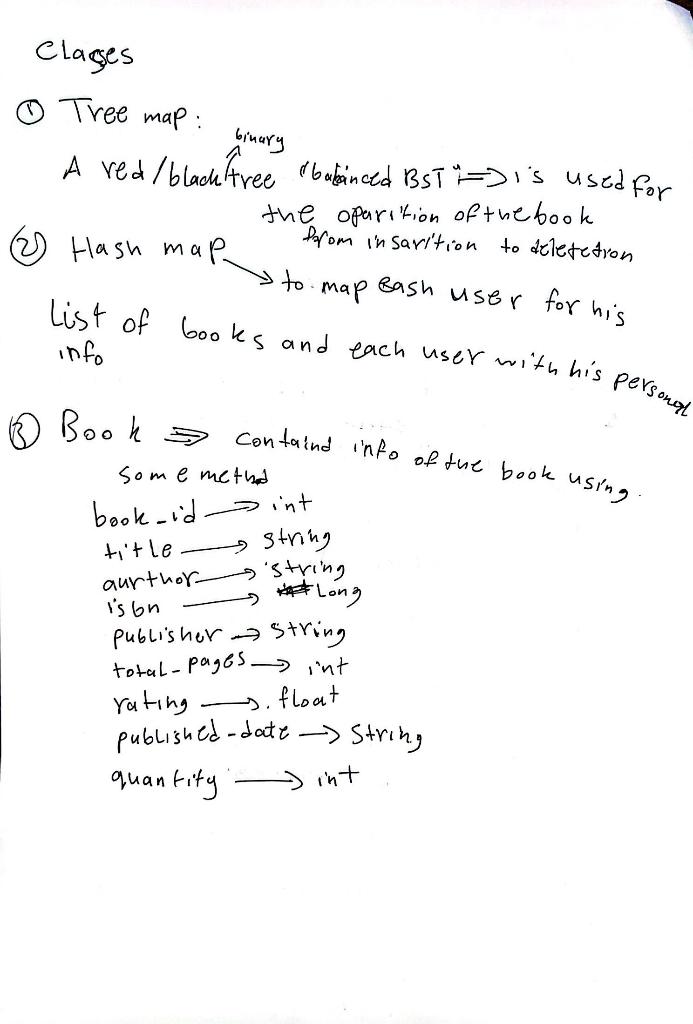 Classes
① Tree map :
binary
A red/black tree "balanced BST" => is used for
the oparition of the book
from insarition to deletetion
② Hash map → to map eash user for his
List of books and each user with his personal
info
③ Book => containd info of the book using
some methd
book_id → int
title → string
aurthor → string
isbn → Long
publisher → string
total_pages → int
rating → float
published_date → String
quantity → int